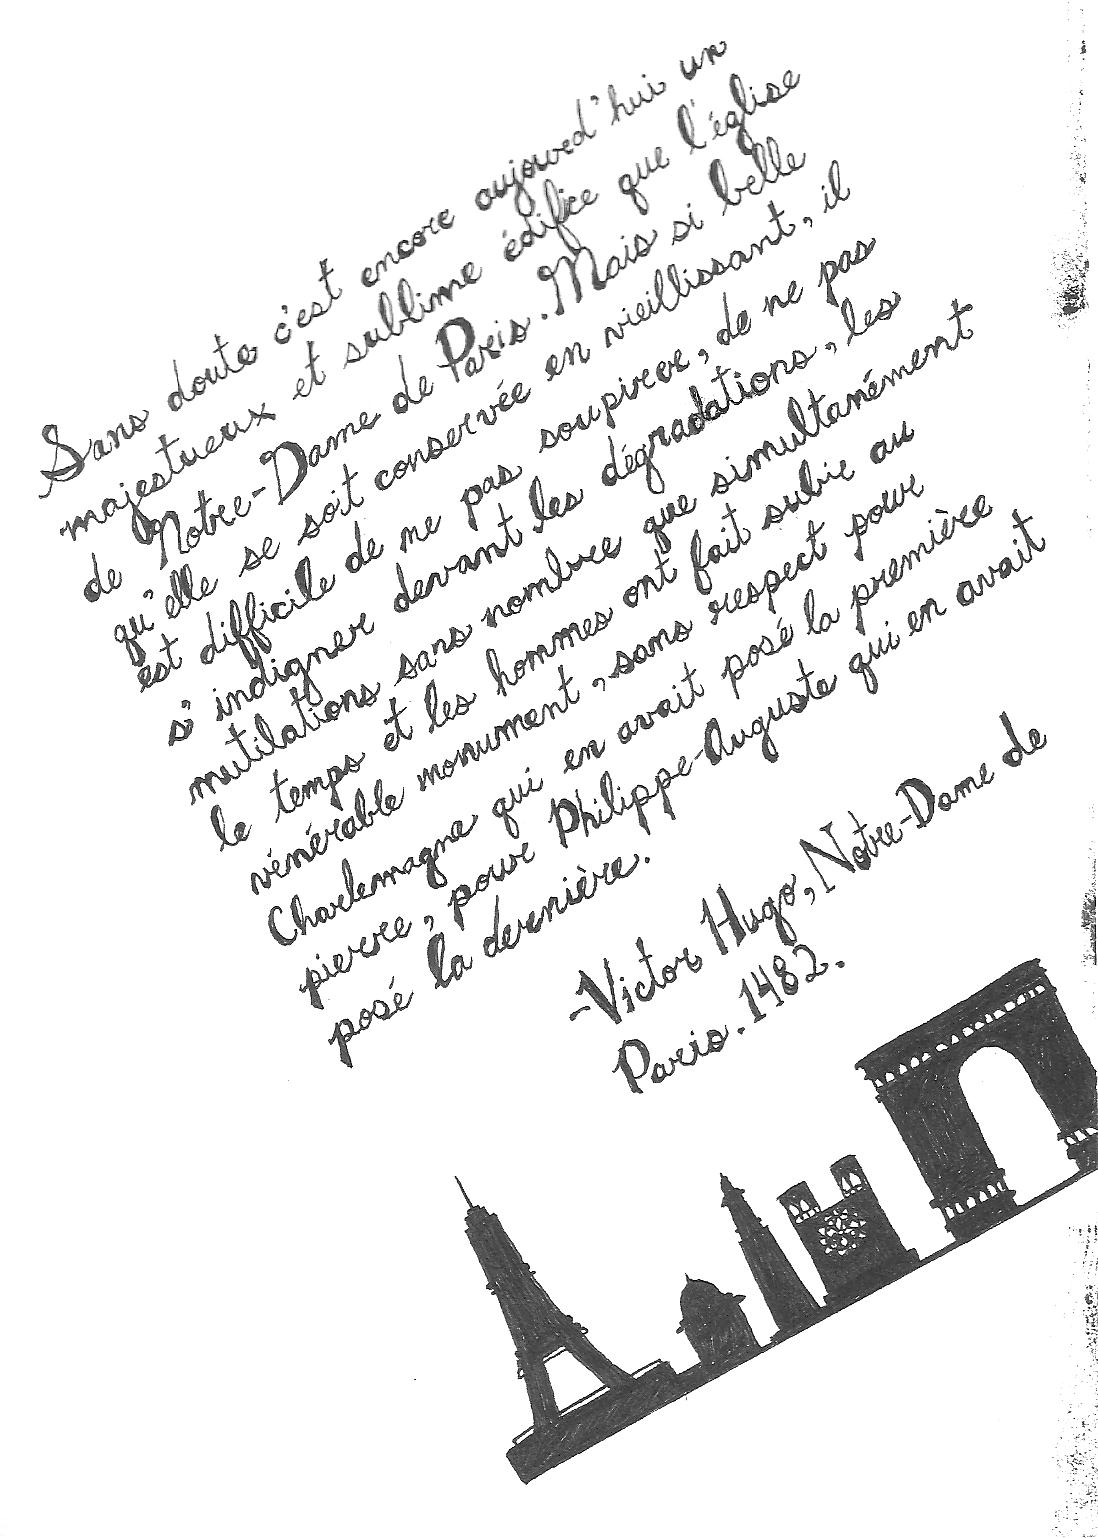 Sans doute c'est encore aujourd'hui un
majestueux et sublime édifice que l'église
de Notre-Dame de Paris. Mais si belle
qu'elle se soit conservée en vieillissant, il
est difficile de ne pas soupirer, de ne pas
s'indigner devant les dégradations, les
mutilations sans nombre que simultanément
le temps et les hommes ont fait subir au
vénérable monument, sans respect pour
Charlemagne qui en avait posé la première
pierre, pour Philippe-Auguste qui en avait
posé la dernière.
-Victor Hugo, Notre-Dame de
Paris. 1482.